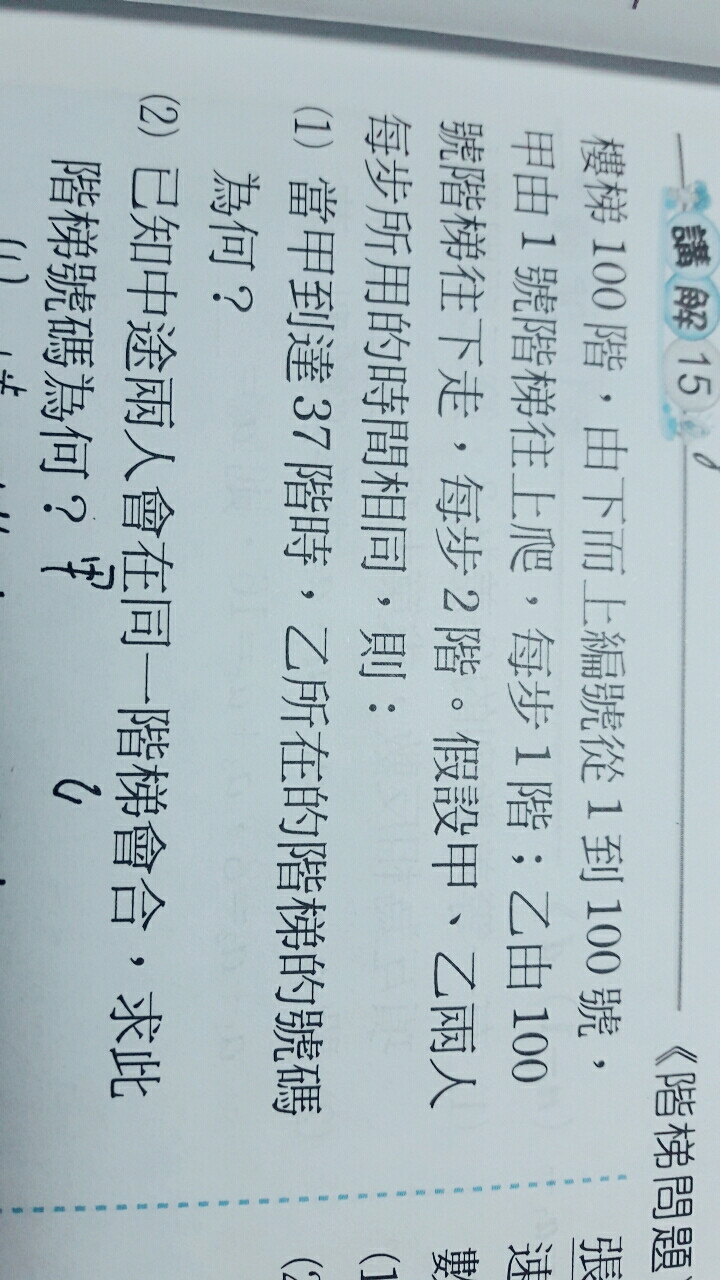 講解15
《階梯問題
樓梯100階，由下而上編號從1到100號，
甲由1號階梯往上爬，每步1階；乙由100
號階梯往下走，每步2階。假設甲、乙兩人
每步所用的時間相同，則：
(1) 當甲到達37階時，乙所在的階梯的號碼
為何？
(2) 已知中途兩人會在同一階梯會合，求此
階梯號碼為何？
甲
乙
(1)
張
速
數
(1
(2